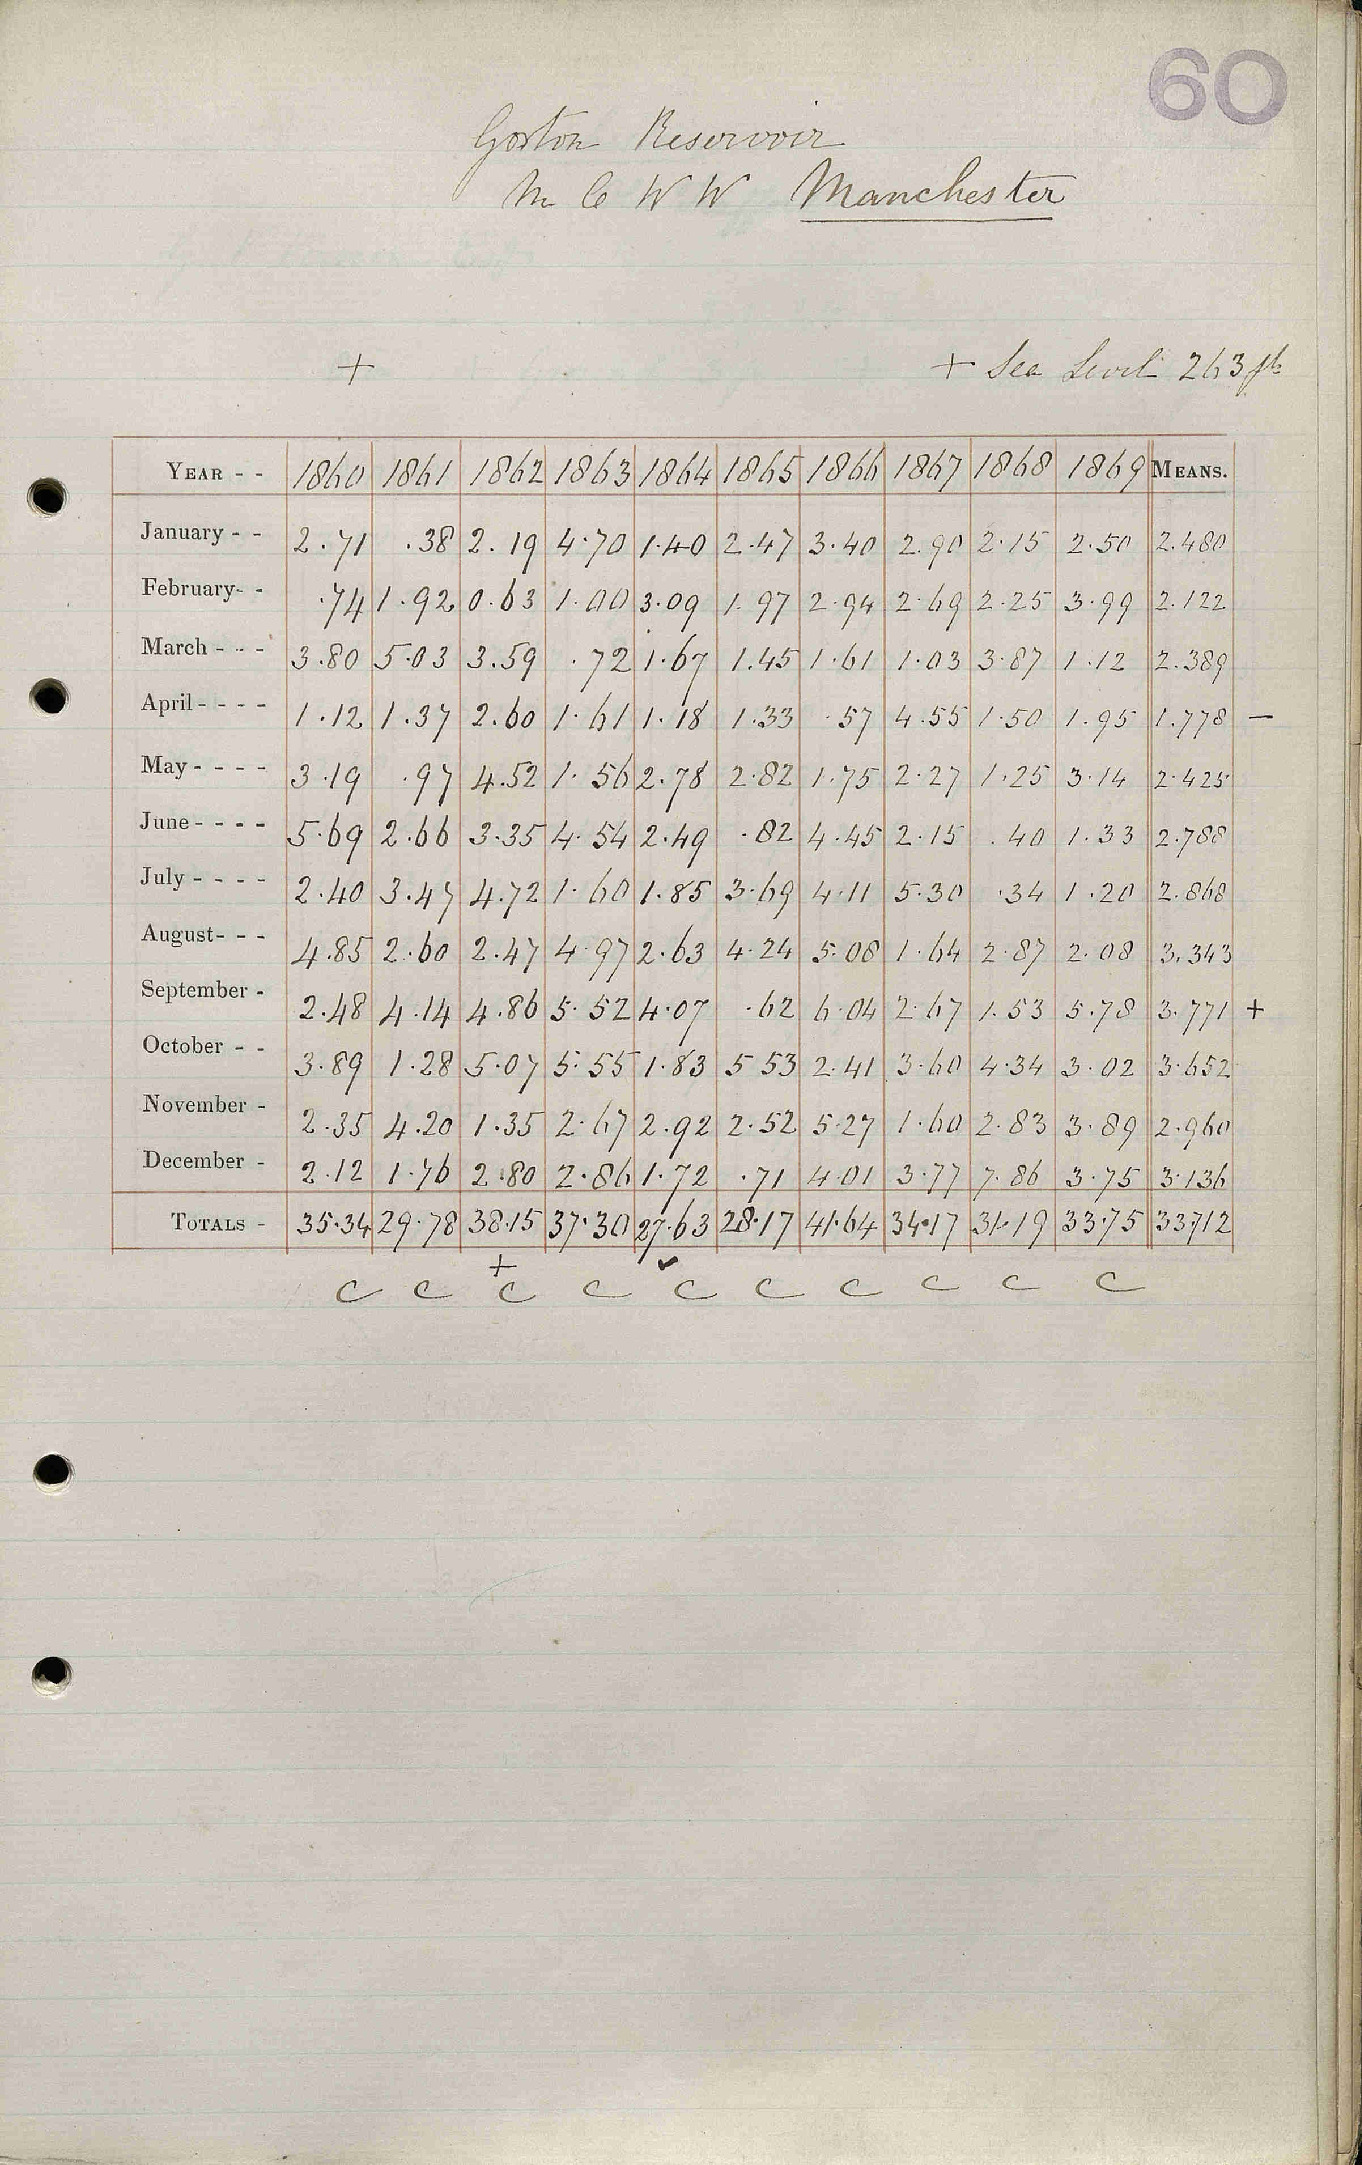 60
Gorton Reservoir
M C W W Manchester
+ + Sea Level 263 ft
YEAR - - 1860 1861 1862 1863 1864 1865 1866 1867 1868 1869 MEANS.
January - - 2.71 .38 2.19 4.70 1.40 2.47 3.40 2.90 2.15 2.50 2.480
February - - .74 1.92 0.63 1.00 3.09 1.97 2.94 2.69 2.25 3.99 2.122
March - - - 3.80 5.03 3.59 .72 1.67 1.45 1.61 1.03 3.87 1.12 2.389
April - - - - 1.12 1.37 2.60 1.61 1.18 1.33 .57 4.55 1.50 1.95 1.778 —
May - - - - 3.19 .97 4.52 1.56 2.78 2.82 1.75 2.27 1.25 3.14 2.425
June - - - - 5.69 2.66 3.35 4.54 2.49 .82 4.45 2.15 .40 1.33 2.788
July - - - - 2.40 3.47 4.72 1.60 1.85 3.69 4.11 5.30 .34 1.20 2.868
August - - - 4.85 2.60 2.47 4.97 2.63 4.24 5.08 1.64 2.87 2.08 3.343
September - 2.48 4.14 4.86 5.52 4.07 .62 6.04 2.67 1.53 5.78 3.771 +
October - - 3.89 1.28 5.07 5.55 1.83 5.53 2.41 3.60 4.34 3.02 3.652
November - 2.35 4.20 1.35 2.67 2.92 2.52 5.27 1.60 2.83 3.89 2.960
December - 2.12 1.76 2.80 2.86 1.72 .71 4.01 3.77 7.86 3.75 3.136
TOTALS - 35.34 29.78 38.15 37.30 27.63 28.17 41.64 34.17 31.19 33.75 33712
+ ✓
C C C C C C C C C C